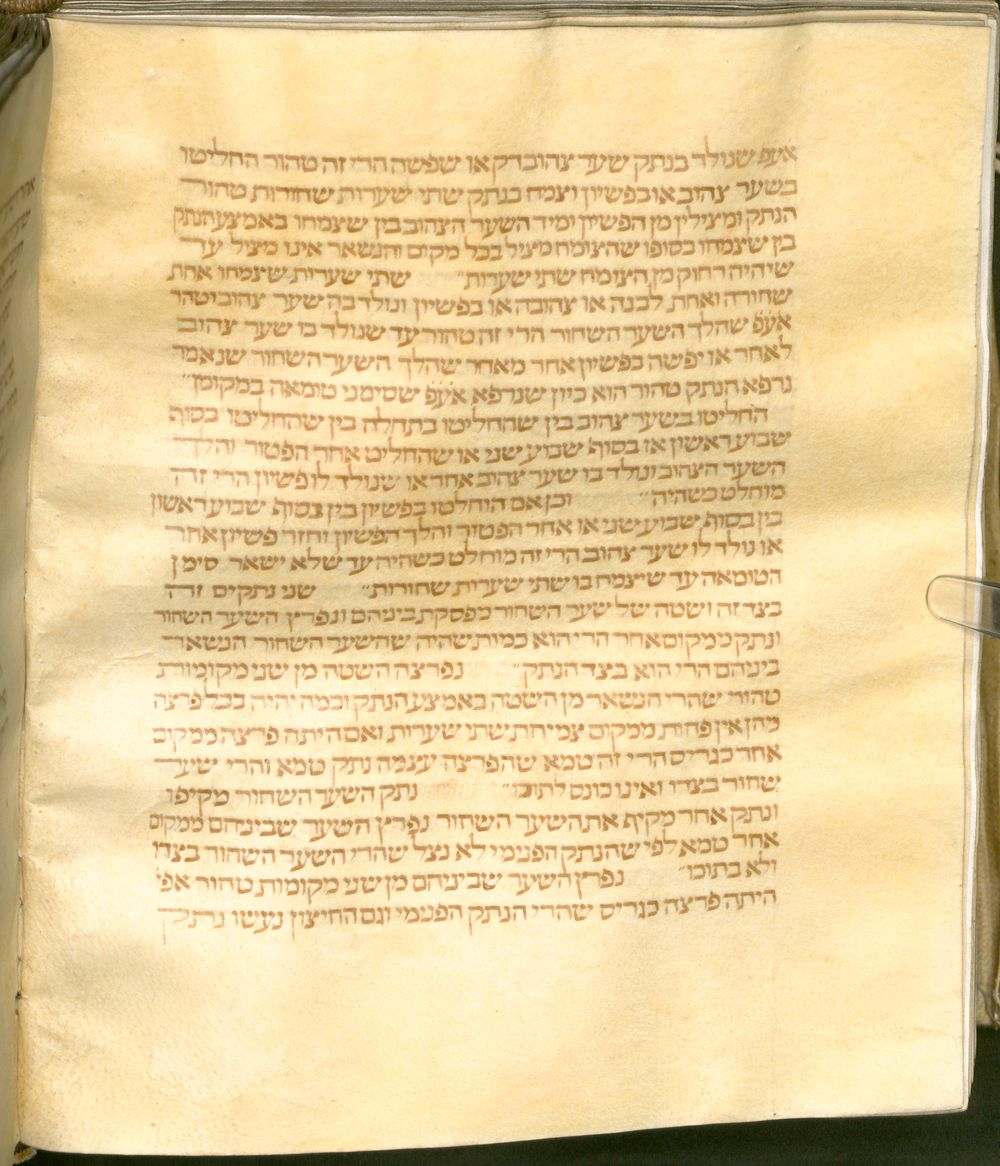 אע״פ שנולד בנתק שער צהוב דק או שפשה הרי זה טהור החליטו
בשער צהוב או בפשיון וצמח בנתק שתי שערות שחורות טהור
הנתק ומצילין מן הפשיון ומיד השער הצהוב בין שצמחו באמצע הנתק
בין שצמחו בסופו שהצומח מציל בכל מקום והנשאר אינו מציל עד
שיהיה רחוק מן הצומח שתי שערות״ שתי שערות שצמחו אחת
שחורה ואחת לבנה או צהובה או בפשיון ונולד בה שער צהוב יטהר
אע״פ שהלך השער השחור הרי זה טהור עד שנולד בו שער צהוב
לאחר או יפשה בפשיון אחר מאחר שהלך השער השחור שנאמר
נרפא הנתק טהור הוא כיון שנרפא אע״פ שסימני טומאה במקומן״
החליטו בשער צהוב בין שהחליטו בתחלה בין שהחליטו בסוף
שבוע ראשון או בסוף שבוע שני או שהחליט אחר הפטור והלך
השער הצהוב ונולד בו שער צהוב אחר או שנולד לו פשיון הרי זה
מוחלט כשהיה״ וכן אם הוחלטו בפשיון בין בסוף שבוע ראשון
בין בסוף שבוע שני או אחר הפטור והלך הפשיון וחזר פשיון אחר
או נולד לו שער צהוב הרי זה מוחלט כשהיה עד שלא ישאר סימן
הטומאה עד שיצמח בו שתי שערות שחורות״ שני נתקים זה
בצד זה ושטה של שער השחור מפסקת ביניהם ונפרץ השער השחור
ונתק ממקום אחר הרי הוא כמות שהיה שהשער השחור הנשאר
ביניהם הרי הוא בצד הנתק״ נפרצה השטה מן שני מקומות
טהור שהרי הנשאר מן השטה באמצע הנתק וכמה יהיה בכל פרצה
מהן אין פחות ממקום צמיחת שתי שערות ואם היתה פרצה ממקום
אחר כגריס הרי זה טמא שהפרצה עצמה נתק טמא והרי שער
שחור בצדו ואינו כונס לתוכו״ נתק השער השחור מקיפו
ונתק אחר מקיף את השער השחור נפרץ השער שביניהם ממקום
אחר טמא לפי שהנתק הפנימי לא נצל שהרי השער השחור בצדו
ולא בתוכו״ נפרץ השער שביניהם מן שני מקומות טהור אפי׳
היתה פרצה כגריס שהרי הנתק הפנימי וגם החיצון נעשו נתק